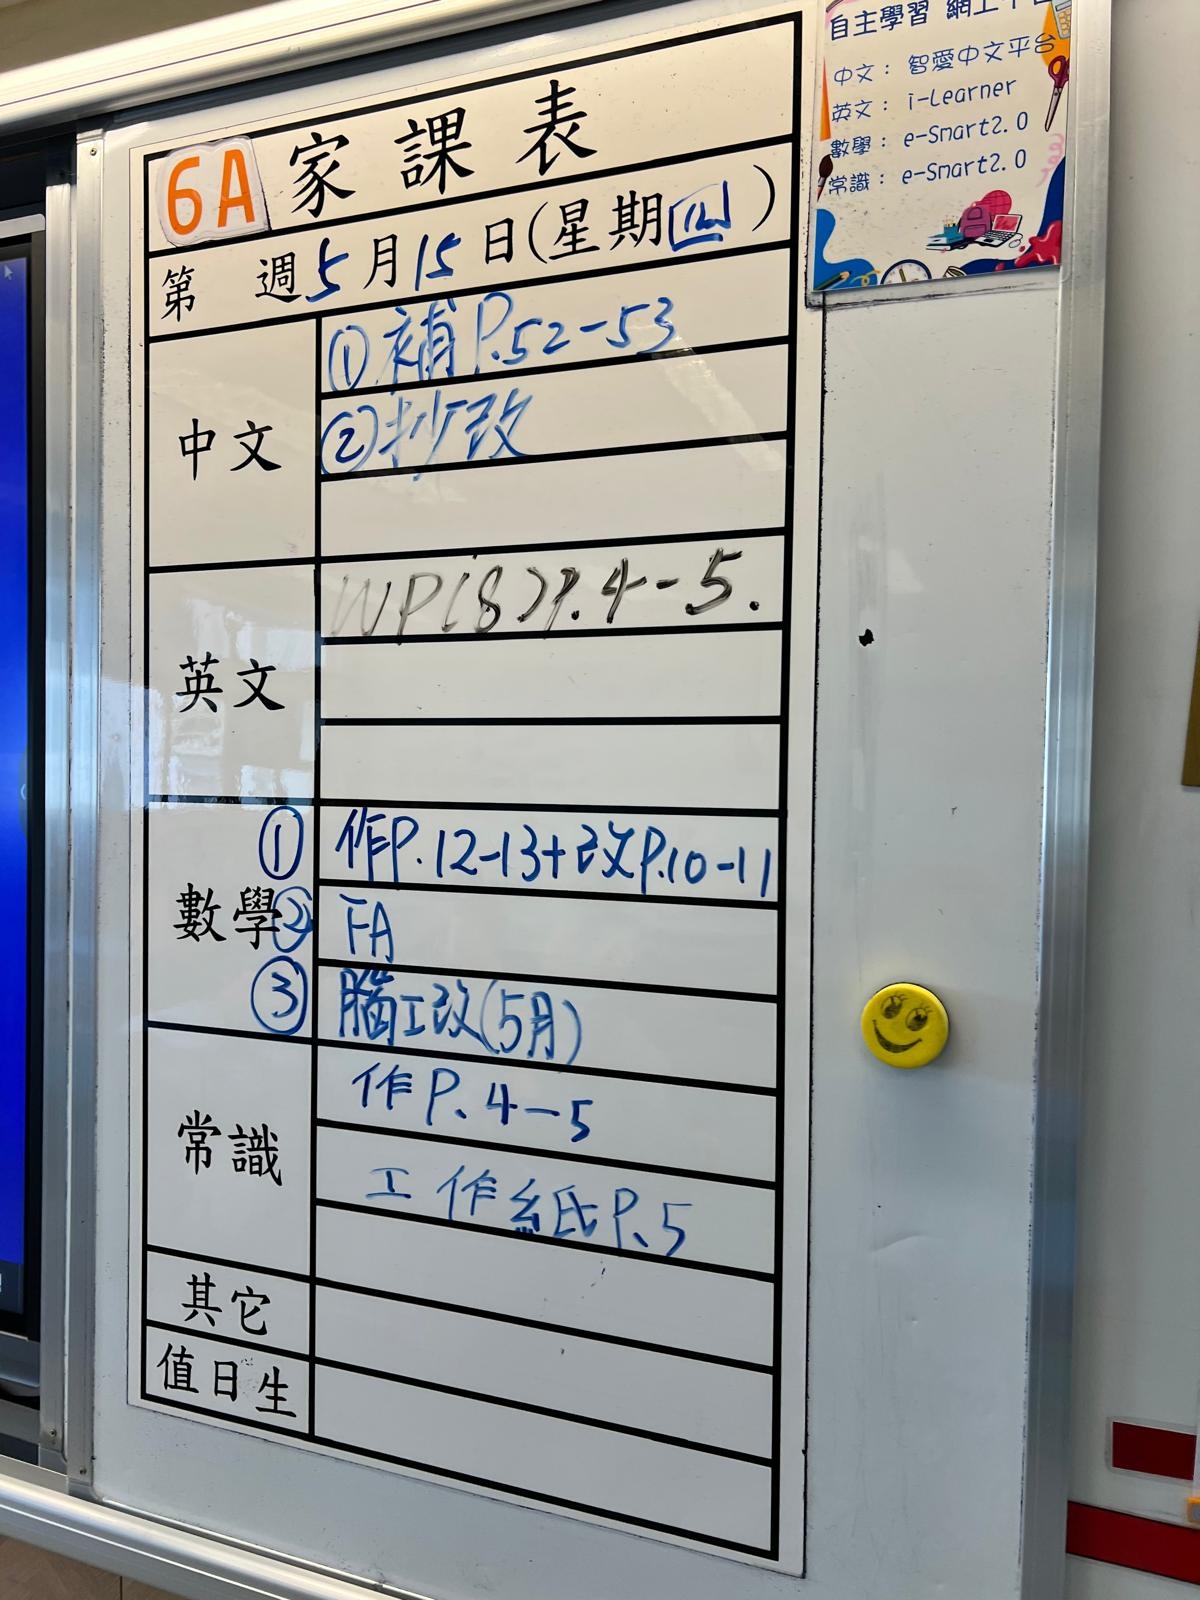 自主學習 網上平台
中文： 智愛中文平台
英文： i-Learner
數學： e-Smart2.0
常識： e-Smart2.0
6A 家課表
第 週 5月15日(星期四)
中文
①補P.52-53
②抄改
英文
WP(8)P.4-5.
數學
① 作P.12-13+改P.10-11
② FA
③ 腦工改(5月)
常識
作P.4-5
工作紙P.5
其它
值日生